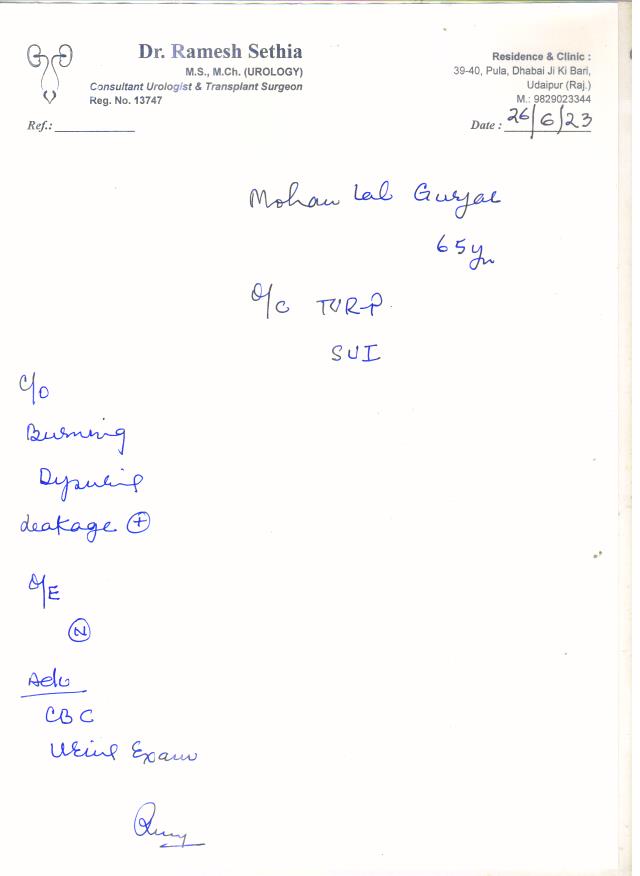 Dr. Ramesh Sethia
M.S., M.Ch. (UROLOGY)
Consultant Urologist & Transplant Surgeon
Reg. No. 13747
Ref.:
Residence & Clinic :
39-40, Pula, Dhabai Ji Ki Bari,
Udaipur (Raj.)
M.: 9829023344
Date : 26/6/23
Mohan Lal Gurjar
65yr
O/C TUR-P
SUI
C/O
Burning
leakage (+)
O/E
(N)
Adv
CBC
Urine Exam